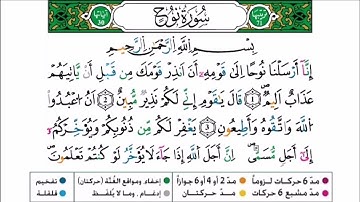 سُورَةُ نُوحٍ
بِسْمِ ٱللَّهِ ٱلرَّحْمَٰنِ ٱلرَّحِيمِ
إِنَّآ أَرْسَلْنَا نُوحًا إِلَىٰ قَوْمِهِۦٓ أَنْ أَنذِرْ قَوْمَكَ مِن قَبْلِ أَن يَأْتِيَهُمْ
عَذَابٌ أَلِيمٌ ۝١ قَالَ يَٰقَوْمِ إِنِّى لَكُمْ نَذِيرٌ مُّبِينٌ ۝٢ أَنِ ٱعْبُدُوا۟
ٱللَّهَ وَٱتَّقُوهُ وَأَطِيعُونِ ۝٣ يَغْفِرْ لَكُم مِّن ذُنُوبِكُمْ وَيُؤَخِّرْكُمْ
إِلَىٰٓ أَجَلٍ مُّسَمًّى إِنَّ أَجَلَ ٱللَّهِ إِذَا جَآءَ لَا يُؤَخَّرُ لَوْ كُنتُمْ تَعْلَمُونَ
مدّ 6 حركات لزوماً مدّ 2 أو 4 أو 6 جوازاً إخفاء، ومواقع الغُنَّة (حركتان) تفخيم
مدّ مشبع 6 حركات مدّ حركتان إدغام، وما لا يُلفَظ قلقلة